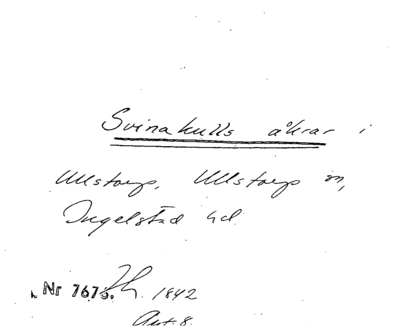 Svinakulls åkrar i
Ullstorp, Ullstorps sn,
Ingelstad hd.
Nr 7675. 1842
Avt. 8.